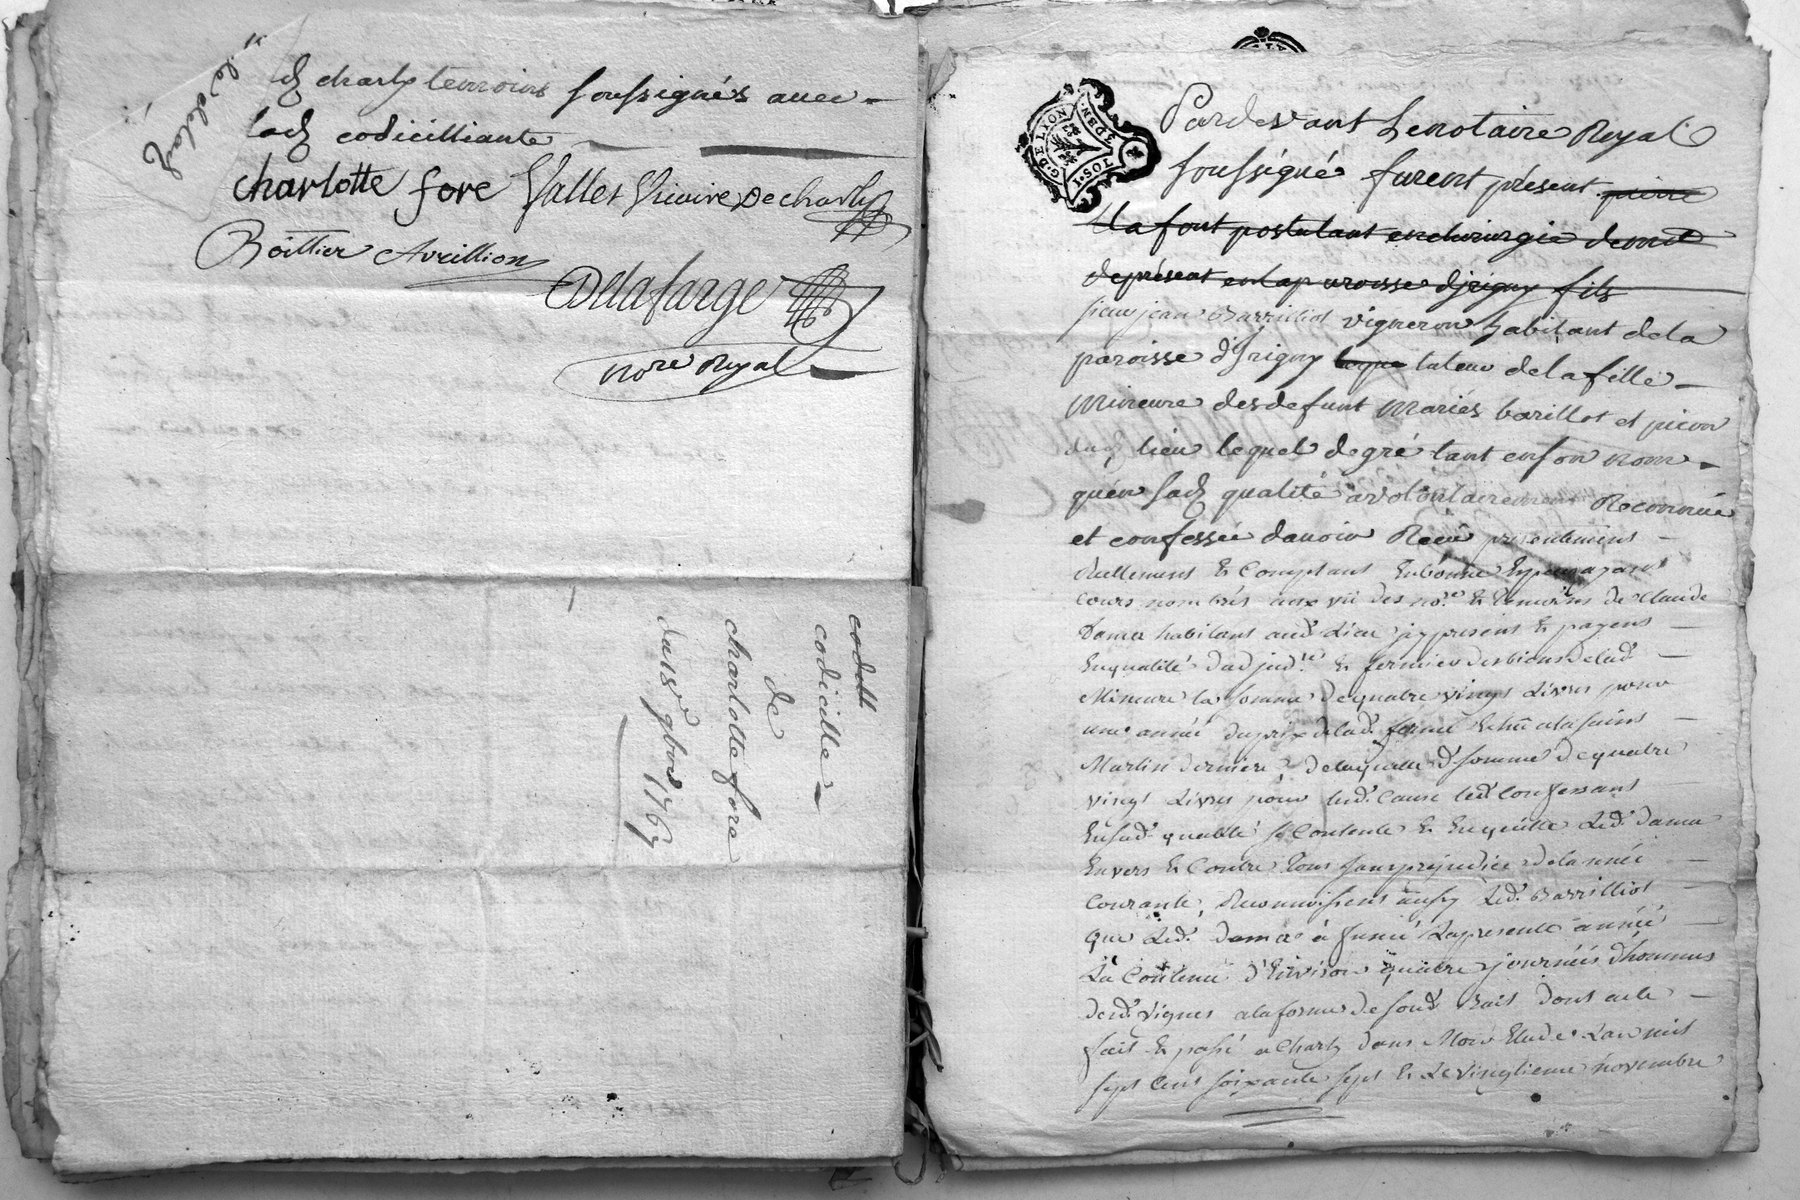 dud charly temoins soussignés avec
lad codicilliante
charlotte fore Valler Vicaire De charly
Boittier Avrillion
Delafarge
nore Royal
codicille
de
charlotte fore
du 15e 9bre 1767
G. DE LYON
Pardevant Le notaire Royal
soussigné furent présent pierre
Lafont postulant en chirurgie demt
deprésent enlaparoisse djrigny fils
sieur jean Barrilliot vigneron habitant dela
paroisse d'Jrigny tuteur delafille
mineure desdefunt mariés barillot et picon
dud lieu lequel degré tant enson nom
quén sad qualité avolontairement Reconnue
et confessée davoir Reeu présentement
réellement & Comptant Enbonne Espece ayant
cours nombrés aux vü des nore & temoins de Claude
Dama habitant aud. Lieu jcy present & payent
Enqualité Dadjudre & fermier desbiens delad.
Mineure la somme dequatre vingt Livres pour
une année duprix delad. ferme Echüe alasaint
Martin derniere, delaquelle d. somme dequatre
vingt Livres pour lad. Cause led. Confessant
Ensad. qualité se Contente & Enquitte Led. Dama
Envers & Contre tous sanspréjudice delannée
Courante, Reconnoissent aussy Led. Barrilliot
que Led. Dama à fumé Lapresente année
La Contenue d'Environ quatre journées dhommes
desd. vignes alaforme de sond. Bait dont acte
fait & passé a Charly dans Mon Etude Lan mil
sept Cent soixante sept & Le vingtieme novembre